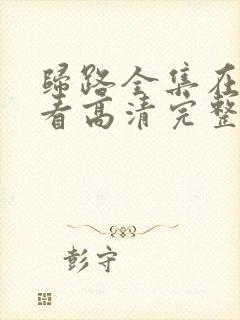 归路全集在
看高清完整
彭守